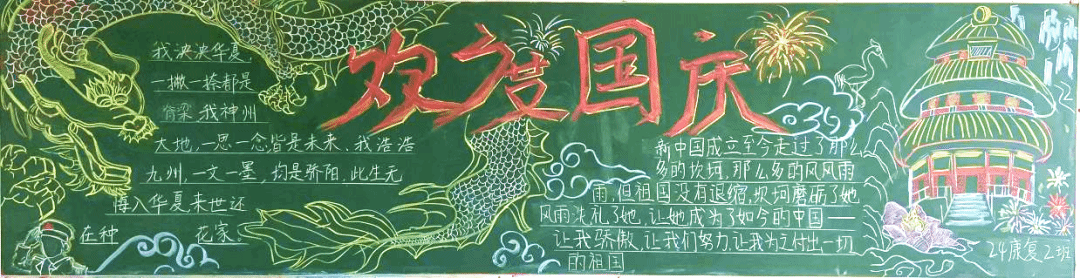 欢度国庆
我泱泱华夏,
一撇一捺都是
脊梁,我神州
大地,一思一念皆是未来,我浩浩
九州,一文一墨,均是骄阳,此生无
悔入华夏来世还
在种花家。
新中国成立至今走过了那么
多的坎坷,那么多的风风雨
雨,但祖国没有退缩,坎坷磨砺了她
风雨洗礼了她,让她成为了如今的中国——
让我骄傲,让我们努力,让我为之付出一切
的祖国
24康复2班